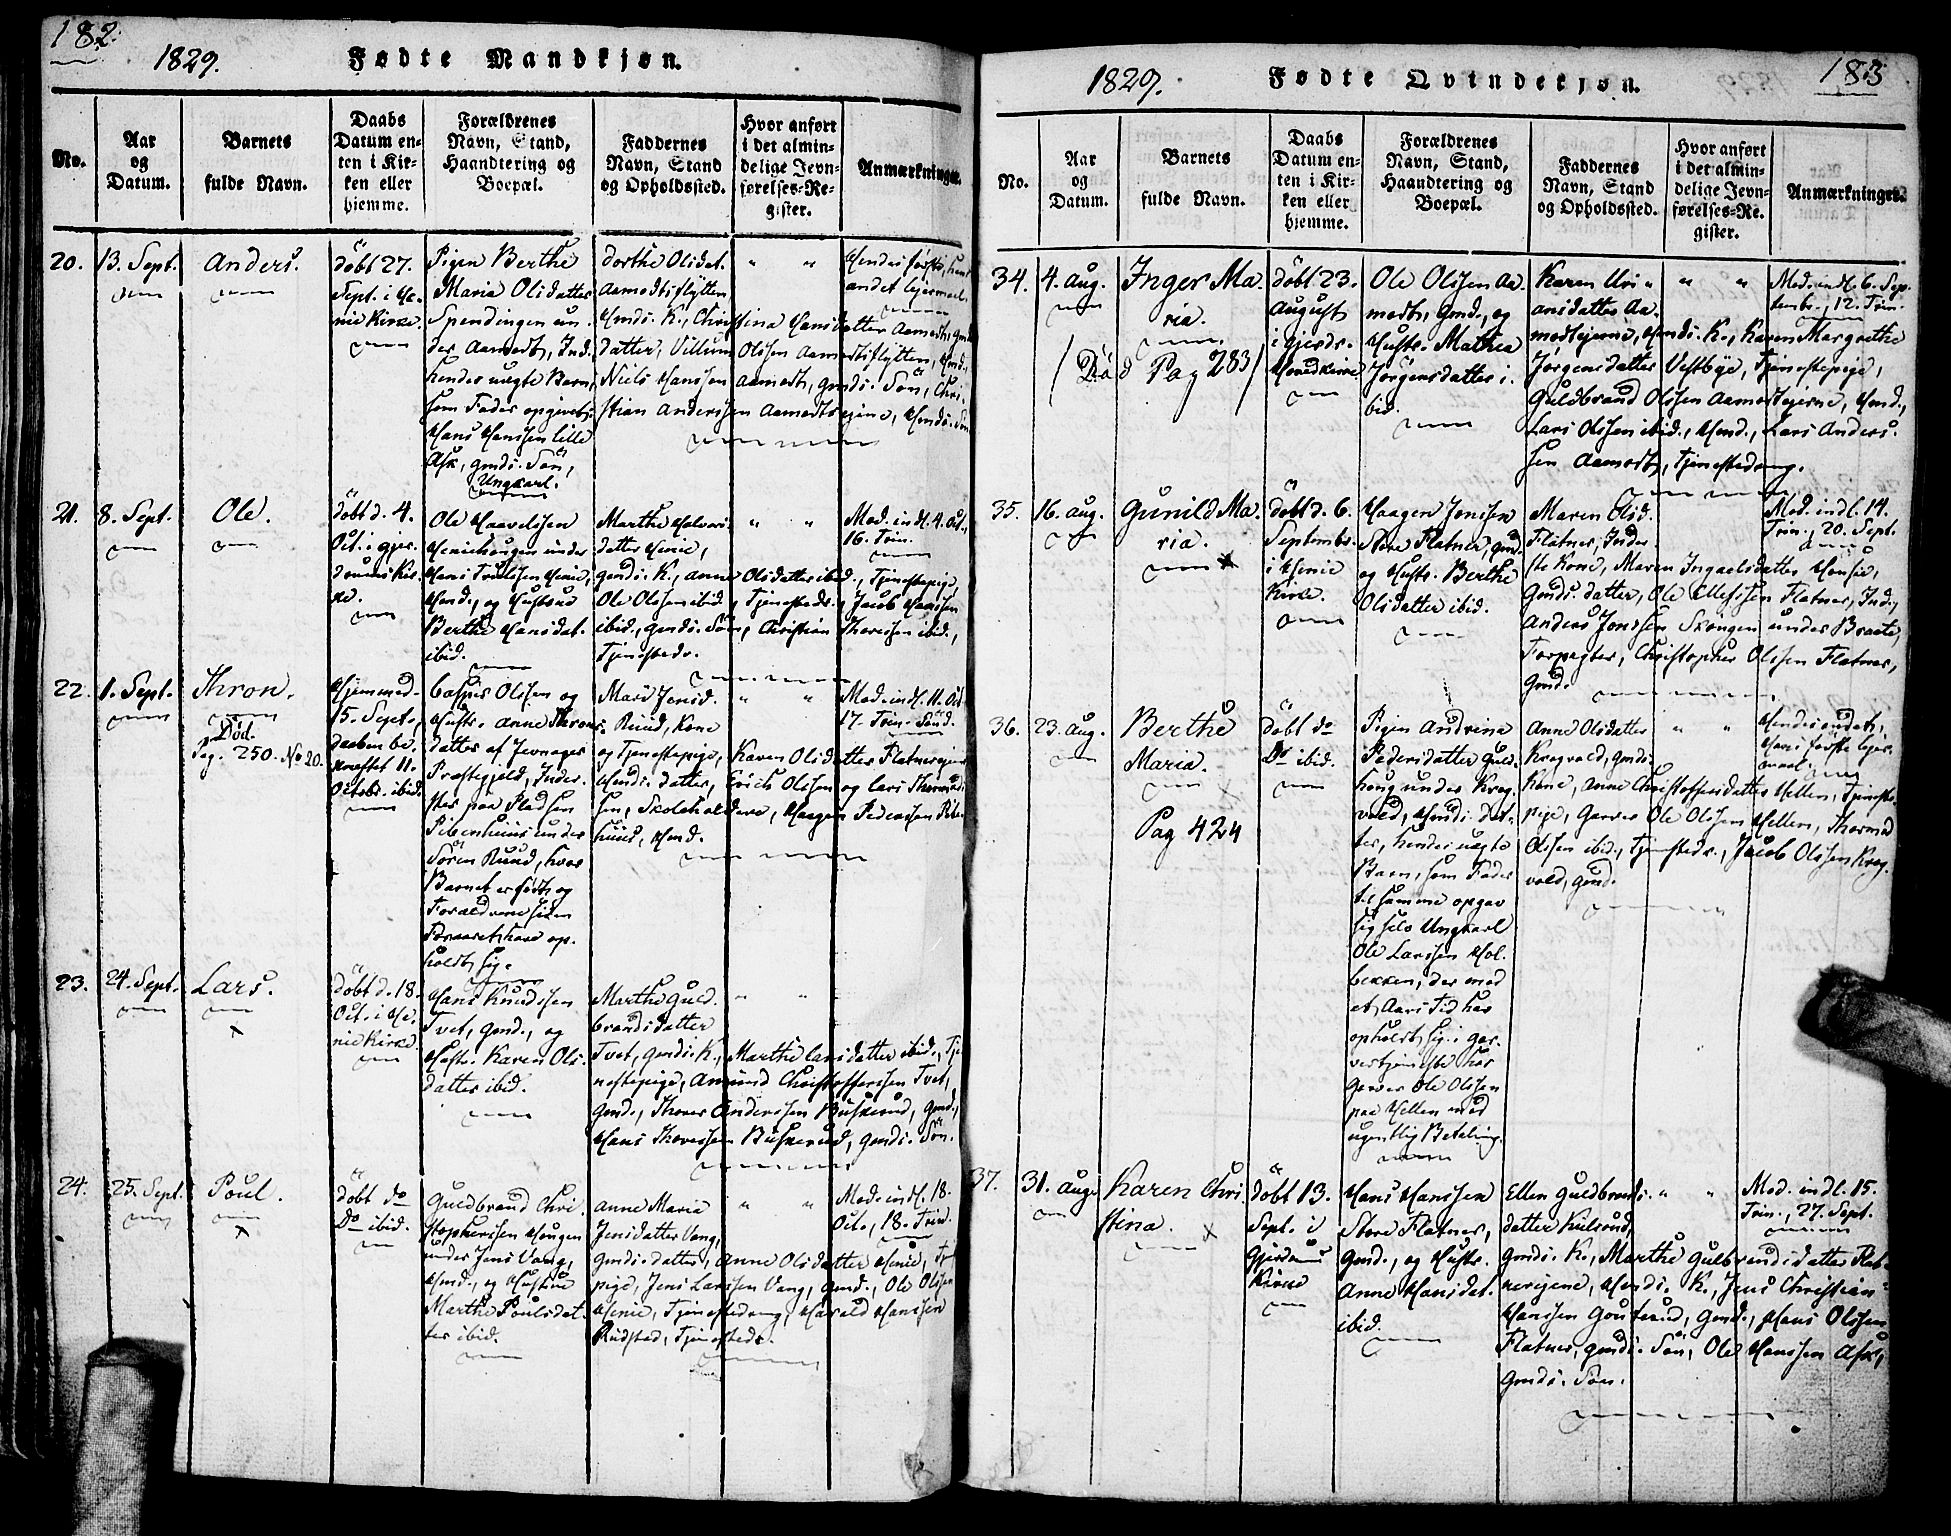 182.
1829. Fødte Mandkjøn.
No.
Aar
og
Datum.
Barnets
fulde Navn.
Daabs
Datum en-
ten i Kir-
ken eller
hjemme.
Forældrenes
Navn, Stand,
Haandtering og
Boepæl.
Faddernes
Navn, Stand
og Opholdssted.
Hvor anført
i det almin-
delige Jevn-
førelses-Re-
gister.
Anmærkninger.
20.
13. Sept.
Anders.
döbt 27.
Sept. i He-
nie Kirke.
Pigen Berthe
Maria Olsdatter
Spendingen un-
der Aamodt, Ind.
hendes uægte Barn,
som Fader opgivet
Hans Hanssen lille
Ask, gmds. Sön,
Ungkarl.
Dorthe Olsdat.
Aamodtsflytten,
Hmds. K., Christina Hansdatter Aamodt, gmds
datter, Villum Olssen Aamodtsflytten, Hmd.,
Niels Hanssen Aamodt, gmds. Sön, Chri-
stian Anderssen Aamodtsejene, Hmds. Sön
" "
Hendes første, hans
andet lejermaal.
21.
8. Sept.
Ole.
döbt d. 4.
Oct. i gjer-
drums Kir-
ke.
Ole Haavelssen
Heniehaugen under
Hans Truelssen Henie,
Hmd., og Hustrue
Berthe Hansdat.
ibid.
Marthe Halvors-
datter Henie,
gmds. K., Anne Olsdatter ibid., Tjenestepige,
Ole Olssen ibid., Tjenestedr., Jacob Hanssen
ibid., gmds. Sön, Christian Thoressen ibid.,
Tjenestedr.
" "
Mod. indl. 4. Oct.,
16. Trin.
22.
1. Sept.
Thron.
Död.
Pag. 250. No 20.
Hjemmed.
15. Sept.,
daaben be-
kræftet 11.
Octobr. ibid.
Casper Olssen og
Hustr. Anne Throns-
datter af Jevnager
Præstegjeld, Inder-
ster paa Pladsen
Pibenhuus under
Sören Ruud, hvor
Barnet er født, og
Forældrene siden
Foraaret have op-
holdt sig.
Mari Jensd.
Ruud, Kone
og Tjenestepige, Karen Olsdatter Flatnerejene
Hmds. datter, Erich Olssen og Lars Thormod-
sen, Skoleholdere, Haagen Pederssen Piben-
huus, Hmd.
" "
Mod. indl. 11. Oct.
17. Trin. Sönd.
23.
24. Sept.
Lars.
x
döbt d. 18.
Oct. i He-
nie Kirke.
Hans Knudssen
Tvet, gmd., og
Hustr. Karen Ols-
datter ibid.
Marthe Guld-
brandsdatter
Tvet, gmds. K., Marthe Larsdatter ibid., Tje-
nestepige, Amund Christofferssen Tvet,
gmd., Thorer Anderssen Buskerud, gmd.,
Hans Thoressen Buskerud, gmds. Sön.
" "
24.
25. Sept.
Poul.
x
döbt do
Do ibid.
Guldbrand Chri-
stopherssen Haugen
under Jens Vang,
Hmd., og Hustrue
Marthe Poulsdat-
ter ibid.
Anne Maria
Jensdatter Vang,
gmds. datter, Anne Olsdatter Henie, Tje-
pige, Jens Larssen Vang, gmd., Ole Olssen
Henie, Tjenestedreng, Harald Hanssen
Rudstad, Tjenestedr.
" "
Mod. indl. 18.
Octo, 18. Trin.
183
1829. Fødte Qvindekjøn.
No.
Aar
og
Datum.
Barnets
fulde Navn.
Daabs
Datum en-
ten i Kir-
ken eller
hjemme.
Forældrenes
Navn, Stand,
Haandtering og
Boepæl.
Faddernes
Navn, Stand
og Opholdssted.
Hvor anført
i det almin-
delige Jevn-
førelses-Re-
gister.
Anmærkninger.
34.
4. Aug.
Inger Ma-
ria.
/ Död Pag 283 /
döbt 23.
August
i gjerdr.
Hovedkirke
Ole Olssen Aa-
modt, gmd., og
Hustr. Mathea
Jörgensdatter i-
bid.
Karen Uri-
ansdatter Aa-
modtejerne, Hmds. K., Karen Margrethe
Jørgensdatter Vestbye, Tjenestepige,
Guldbrand Olssen Aamodtejerne, Hmd.,
Lars Olssen ibid., Hmd., Lars Anders-
sen Aamodt, Tjenestedreng.
" "
Mod. indl. 6. Sep-
tembr., 12. Trin.
35.
16. Aug.
Gunild Ma-
ria.
x
döbt d. 6.
Septembr.
i Henie
Kirke.
Haagen Jenssen
Store Flatner, gmd.
og Hustr. Berthe
Olsdatter ibid.
Maren Olsd.
Flatner, Inder-
ste Kone, Maren Ingvelsdatter Hønsie,
gmds. datter, Ole Ellefssen Flatner, Ind.,
Anders Jonssen Skougen under Braate,
Torpagter, Christopher Olssen Flatner,
gmd.
Mod. indl. 14.
Trin., 20. Sept.
36.
23. Aug.
Berthe
Maria.
x
Pag 424
döbt do
Do ibid.
Pigen Andrina
Pedersdatter Guld-
houg under Krog-
vold, Hmds. dat-
ter, hendes uægte
Barn, som Fader
til samme opgav
sig selv Ungkarl
Ole Larssen Hol-
bekken, der med
et Aars Tid har
opholdt sig i gar-
vertjeneste hos
Garver Ole Olssen
paa Hellen med
ugentlig Betaling.
Anne Olsdatter
Krogvold, gmds.
Kone, Anne Christoffersdatter Hellen, Tjeneste-
pige, Garver Ole Olssen Hellen, Thormod
Olssen ibid., Tjenestedr., Jacob Olssen Krog-
vold, gmd.
" "
Hendes andet,
Hans første lejer-
maal.
37.
31. Aug.
Karen Chri-
stina.
x
döbt 13.
Sept. i
Gjerdrums
Kirke
Hans Hanssen
Store Flatner,
gmd., og Hustr.
Anne Hansdat.
ibid.
Ellen Guldbrands-
datter Kulsrud,
gmds. K., Marthe Gulbrandsdatter Flat-
nerejene, Hmds. K., Jens Christian
Hanssen Gouterud, gmd., Hans Olssen
Flatner, gmds. Sön, Ole Hanssen Ask,
gmds. Sön.
" "
Mod. indl. 15.
Trin., 27. Sept.